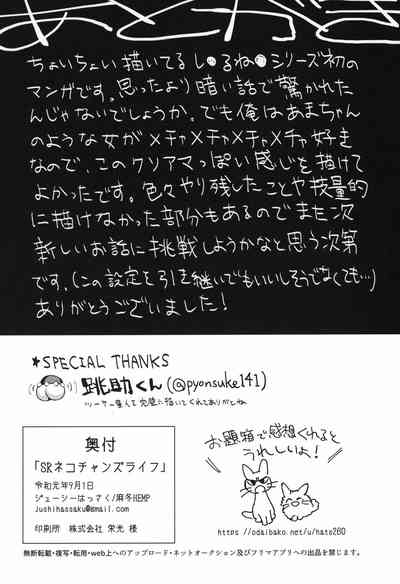 あとがき
ちょいちょい描いてるし●るね●シリーズ初の
マンガです。思ったより暗い話で驚かれた
んじゃないでしょうか。でも俺はあまちゃん
のような女がメチャメチャメチャメチャ好き
なので、このクリアマっぽい感じを描けて
よかったです。色々やり残したことや技量的
に描けなかった部分もあるのでまた次
新しいお話に挑戦しようかなと思う次第
です。(この設定を引き継いでもいいしそうでなくても…)
ありがとうございました!
*SPECIAL THANKS
跳助くん(@pyonsuke141)
完璧に描いてくれてありがとね
奥付
「SRネコチャンズライフ」
令和元年9月1日
ジューシーはっさく/麻冬HEMP
Jushihassaku@gmail.com
印刷所 株式会社 栄光 様
お題箱で感想くれると
うれしいよ!
https://odaibako.net/u/hato260
無断転載・複写・転用・web上へのアップロード・ネットオークション及びフリマアプリへの出品を禁じます。